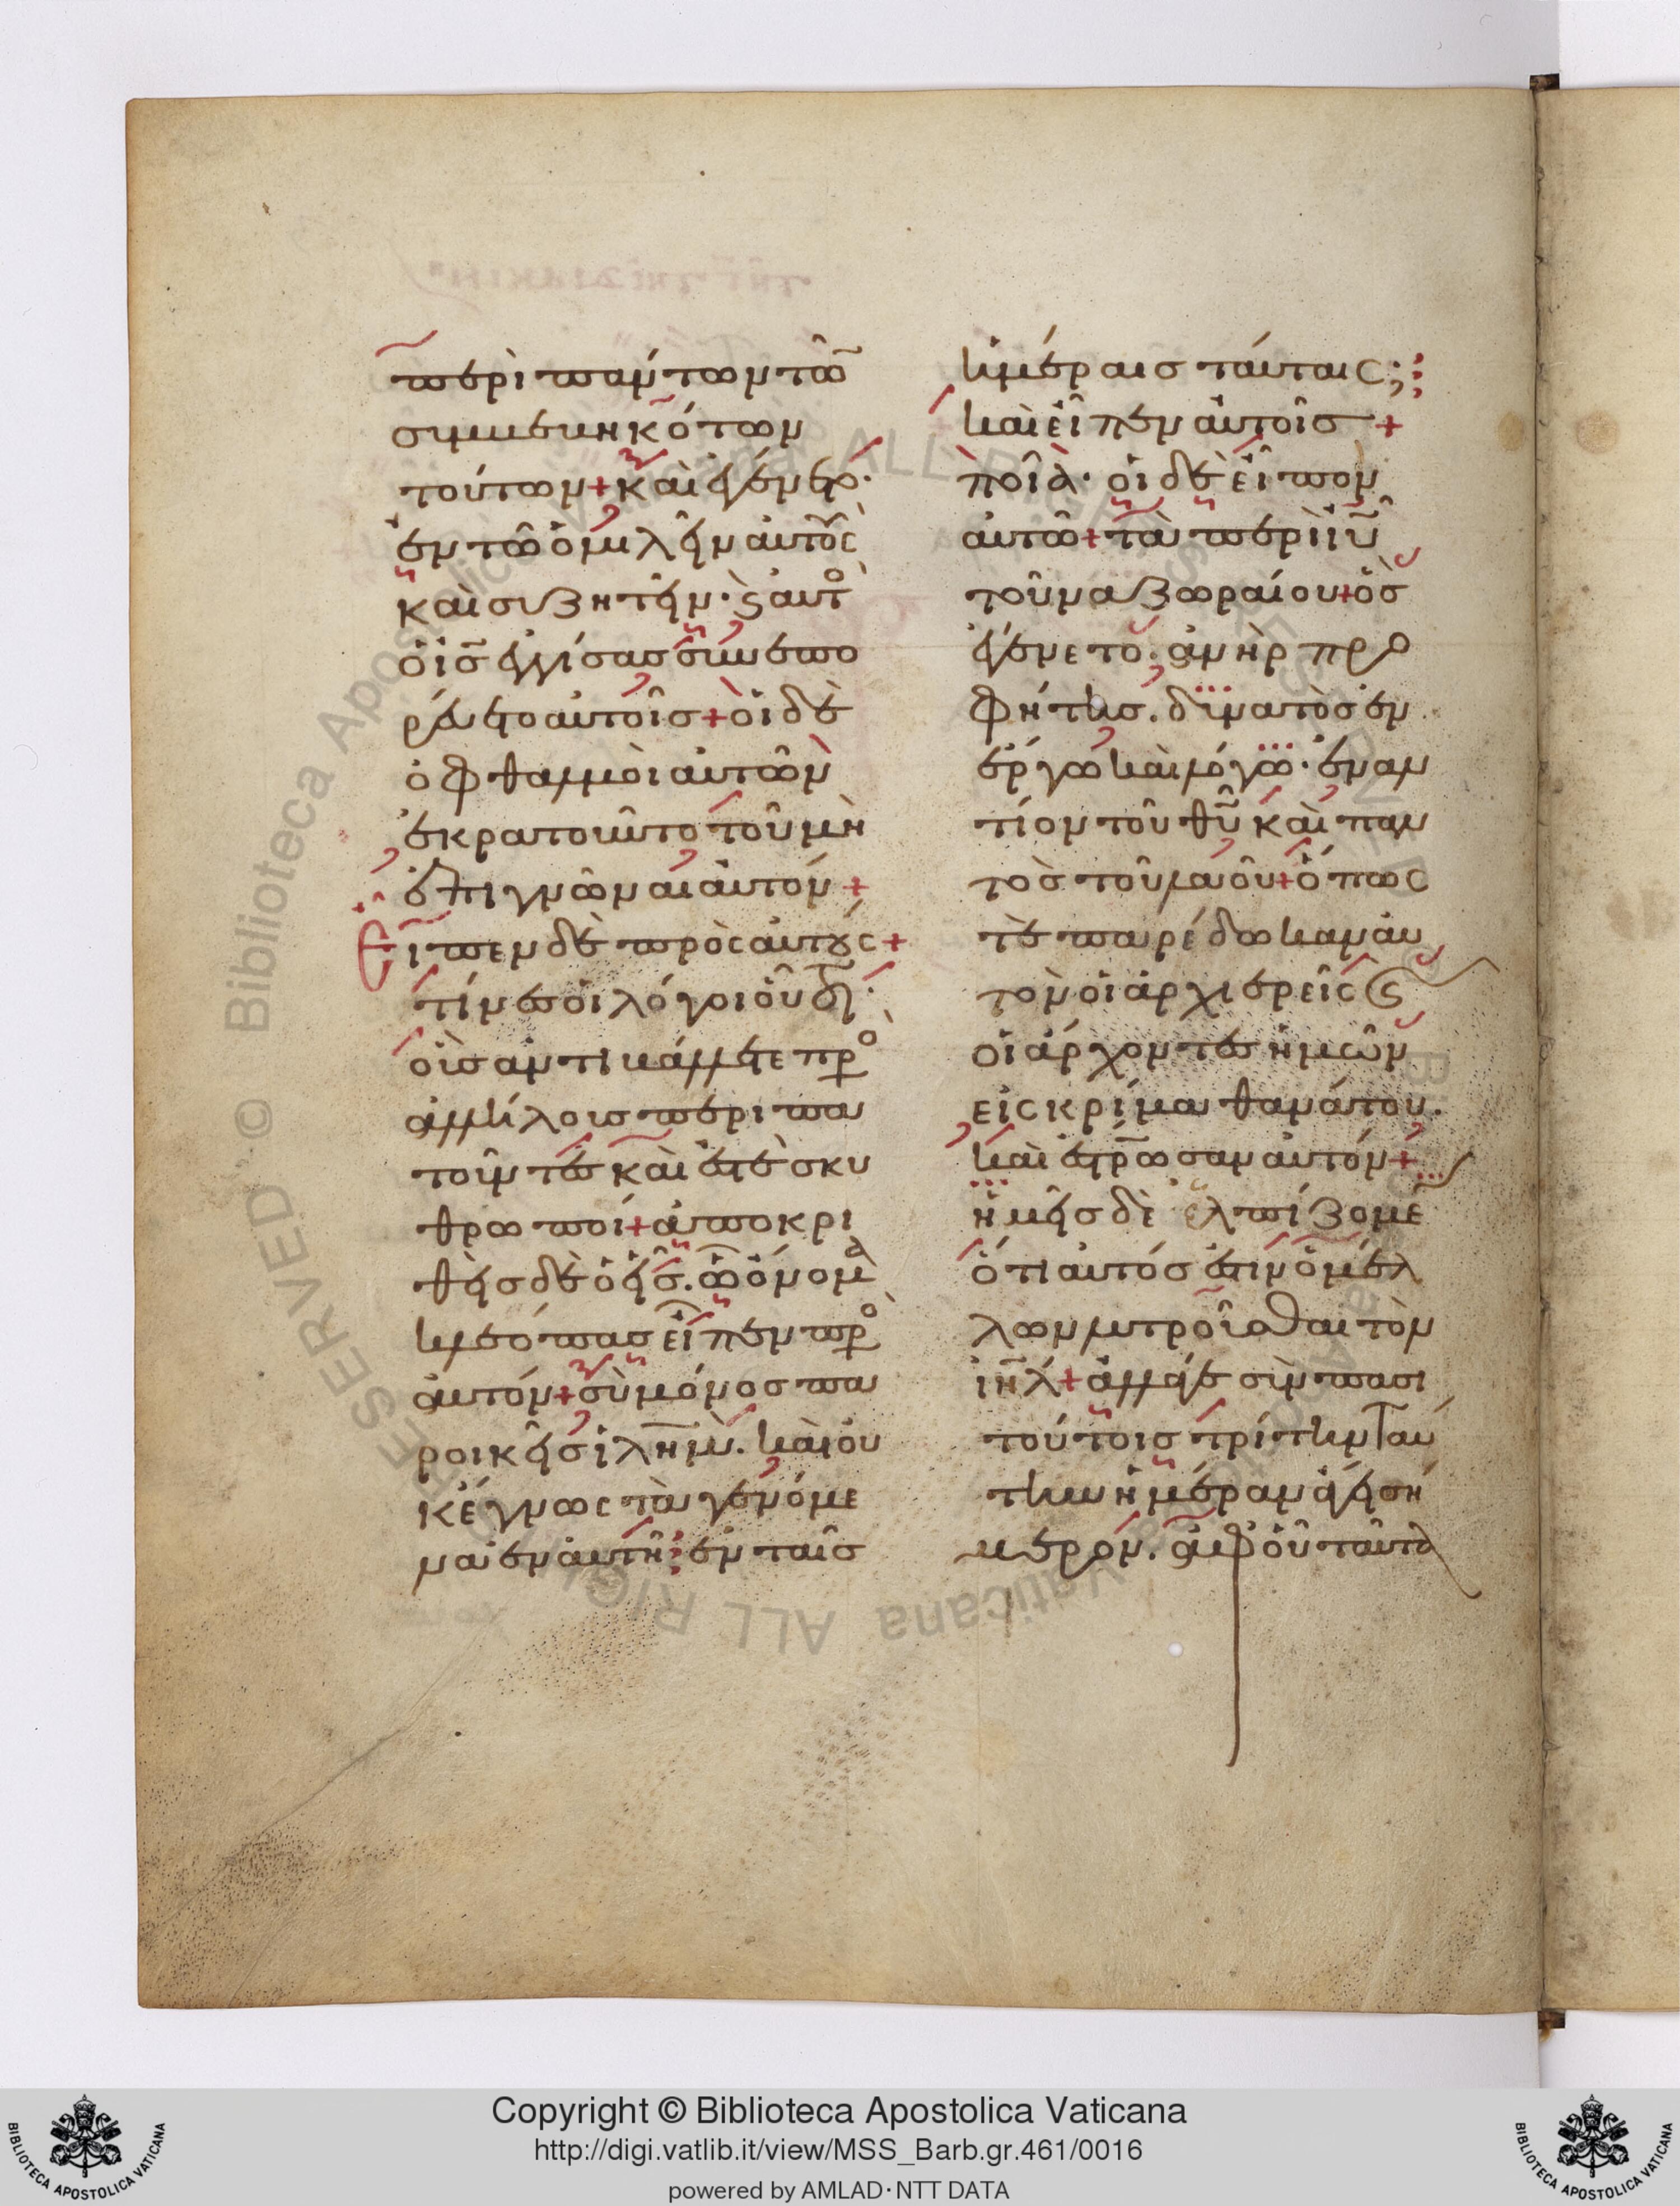 περὶ πάντων τῶ̅
συμβεβηκότων
τούτων+ καὶ ἐγένετο·
ἐν τῶ ὁμιλεῖν αὐτοὺς
καὶ συζητεῖν· καὶ αὐτὸ
ὁ ι̅ς̅ ἐγγίσας συνεπο
ρεύετο αὐτοῖς+ οἱ δὲ
ὀφθαλμοὶ αὐτῶν
ἐκρατοῦντο τοῦ μὴ
ἐπιγνῶναι αὐτόν+
Εἶπεν δὲ πρὸς αὐτούς+
τίνες οἱ λόγοι οὗτοι·
οὓς ἀντιβάλλετε πρὸ
ἀλλήλους περιπα
τοῦντες καὶ ἐστὲ σκυ
θρωποί+ ἀποκρι
θεὶς δὲ ὁ εἷς. ὧ ὄνομα
κλεόπας εἶπεν πρὸ
αὐτόν+ σὺ μόνος πα
ροικεῖς ἰ̅λ̅η̅μ̅. καὶ οὐ
κ ἔγνως τὰ γενόμε
να ἐν αὐτῆ⁝ ἐν ταῖς
ἡμέραις ταύταις;⁝
καὶ εἶπεν αὐτοῖς+
ποῖα· οἱ δὲ εἶπον
αὐτῶ+ τὰ περὶ ι̅υ̅
τοῦ ναζωραίου+ ὃς
ἐγένετο. ἀνὴρ προ
φήτης. δυνατὸς ἐν
ἔργω καὶ λόγω· ἐναν
τίον τοῦ θ̅υ̅ καὶ παν
τὸς τοῦ λαοῦ+ ὅπως
τὲ παρέδωκαν αὐ
τὸν οἱ ἀρχιερεῖς καὶ
οἱ ἄρχοντες ἡμῶν
εἰς κρίμα θανάτου.
καὶ ἐσταύρωσαν αὐτόν+
ἡμεῖς δὲ ἐλπίζομε̅
ὅτι αὐτός ἐστιν ὁ μέλ
λων λυτροῦσθαι τὸν
ι̅η̅λ̅+ ἀλλάγε σὺν πᾶσι
τούτοις τρίτην ταύ
την ἡμέραν ἄγει σή
μερον. ἀφ οὗ ταῦτα
Copyright © Biblioteca Apostolica Vaticana
http://digi.vatlib.it/view/MSS_Barb.gr.461/0016
powered by AMLAD·NTT DATA
BIBLIOTECA APOSTOLICA VATICANA
BIBLIOTECA APOSTOLICA VATICANA